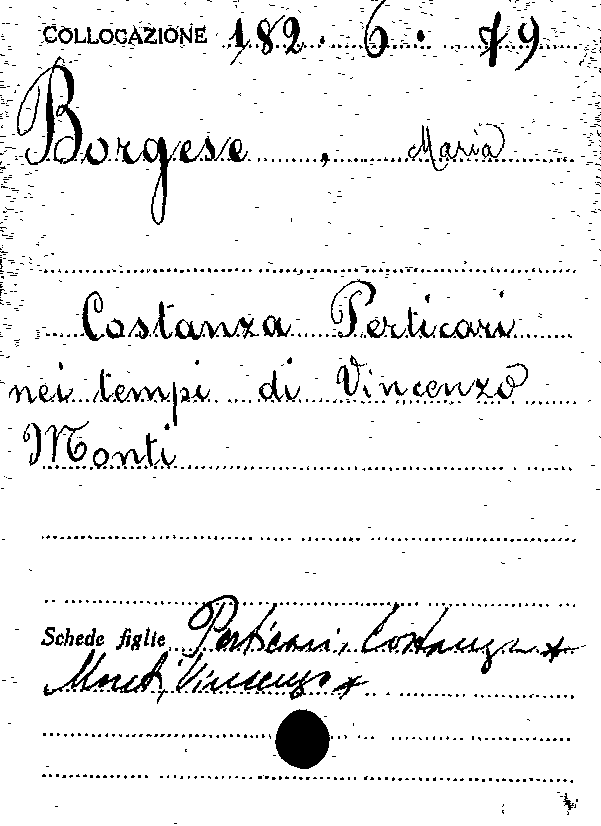 COLLOCAZIONE 182. 6. 79
Borgese, Maria
Costanza Perticari
nei tempi di Vincenzo
Monti
Schede figlie Perticari, Costanza *
Monti, Vincenzo *